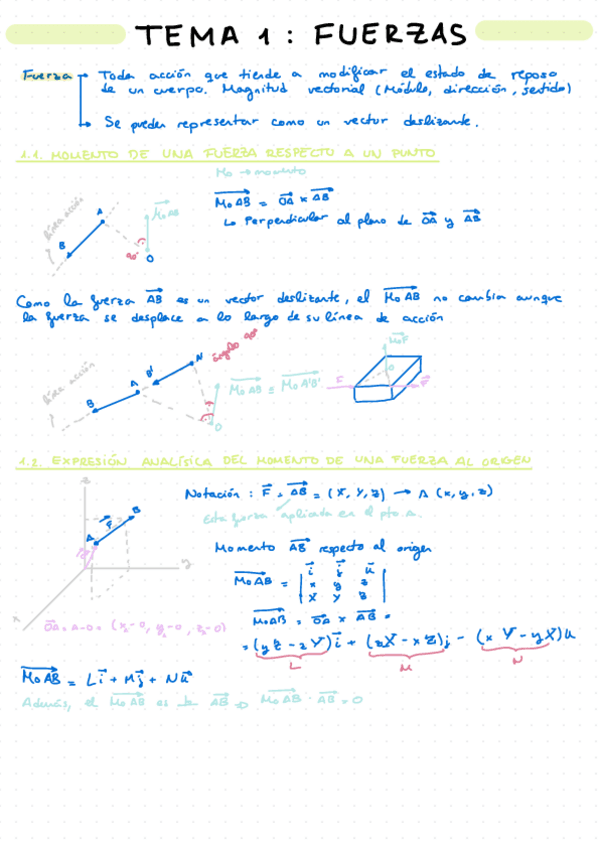 TEMA 1 : FUERZAS
Fuerza → Toda acción que tiende a modificar el estado de reposo
de un cuerpo. Magnitud vectorial (Módulo, dirección, sentido)
→ Se pueden representar como un vector deslizante.
1.1. MOMENTO DE UNA FUERZA RESPECTO A UN PUNTO
Mo → momento
Mo AB = OA x AB
↳ Perpendicular al plano de OA y AB
línea acción
A
B
Mo AB
90º
O
Como la fuerza AB es un vector deslizante, el Mo AB no cambia aunque
la fuerza se desplace a lo largo de su línea de acción
línea acción
B
A
B'
A'
ángulo 90º
O
Mo AB = Mo A'B'
MoF
O
F
F
1.2. EXPRESIÓN ANALÍSICA DEL MOMENTO DE UNA FUERZA AL ORIGEN
Notación : F = AB = (X, Y, Z) → A (x, y, z)
Esta fuerza aplicada en el pto. A.
z
A
F
B
y
x
Momento AB respecto al origen
Mo AB = | i j u |
| x y z |
| X Y Z |
Mo AB = OA x AB =
= (yZ - zY) i + (zX - xZ) j - (xY - yX) u
L
M
N
OA = A-O = (x-0, y-0, z-0)
Mo AB = L i + M j + N u
Además, el Mo AB es la AB ⇒ Mo AB · AB = 0